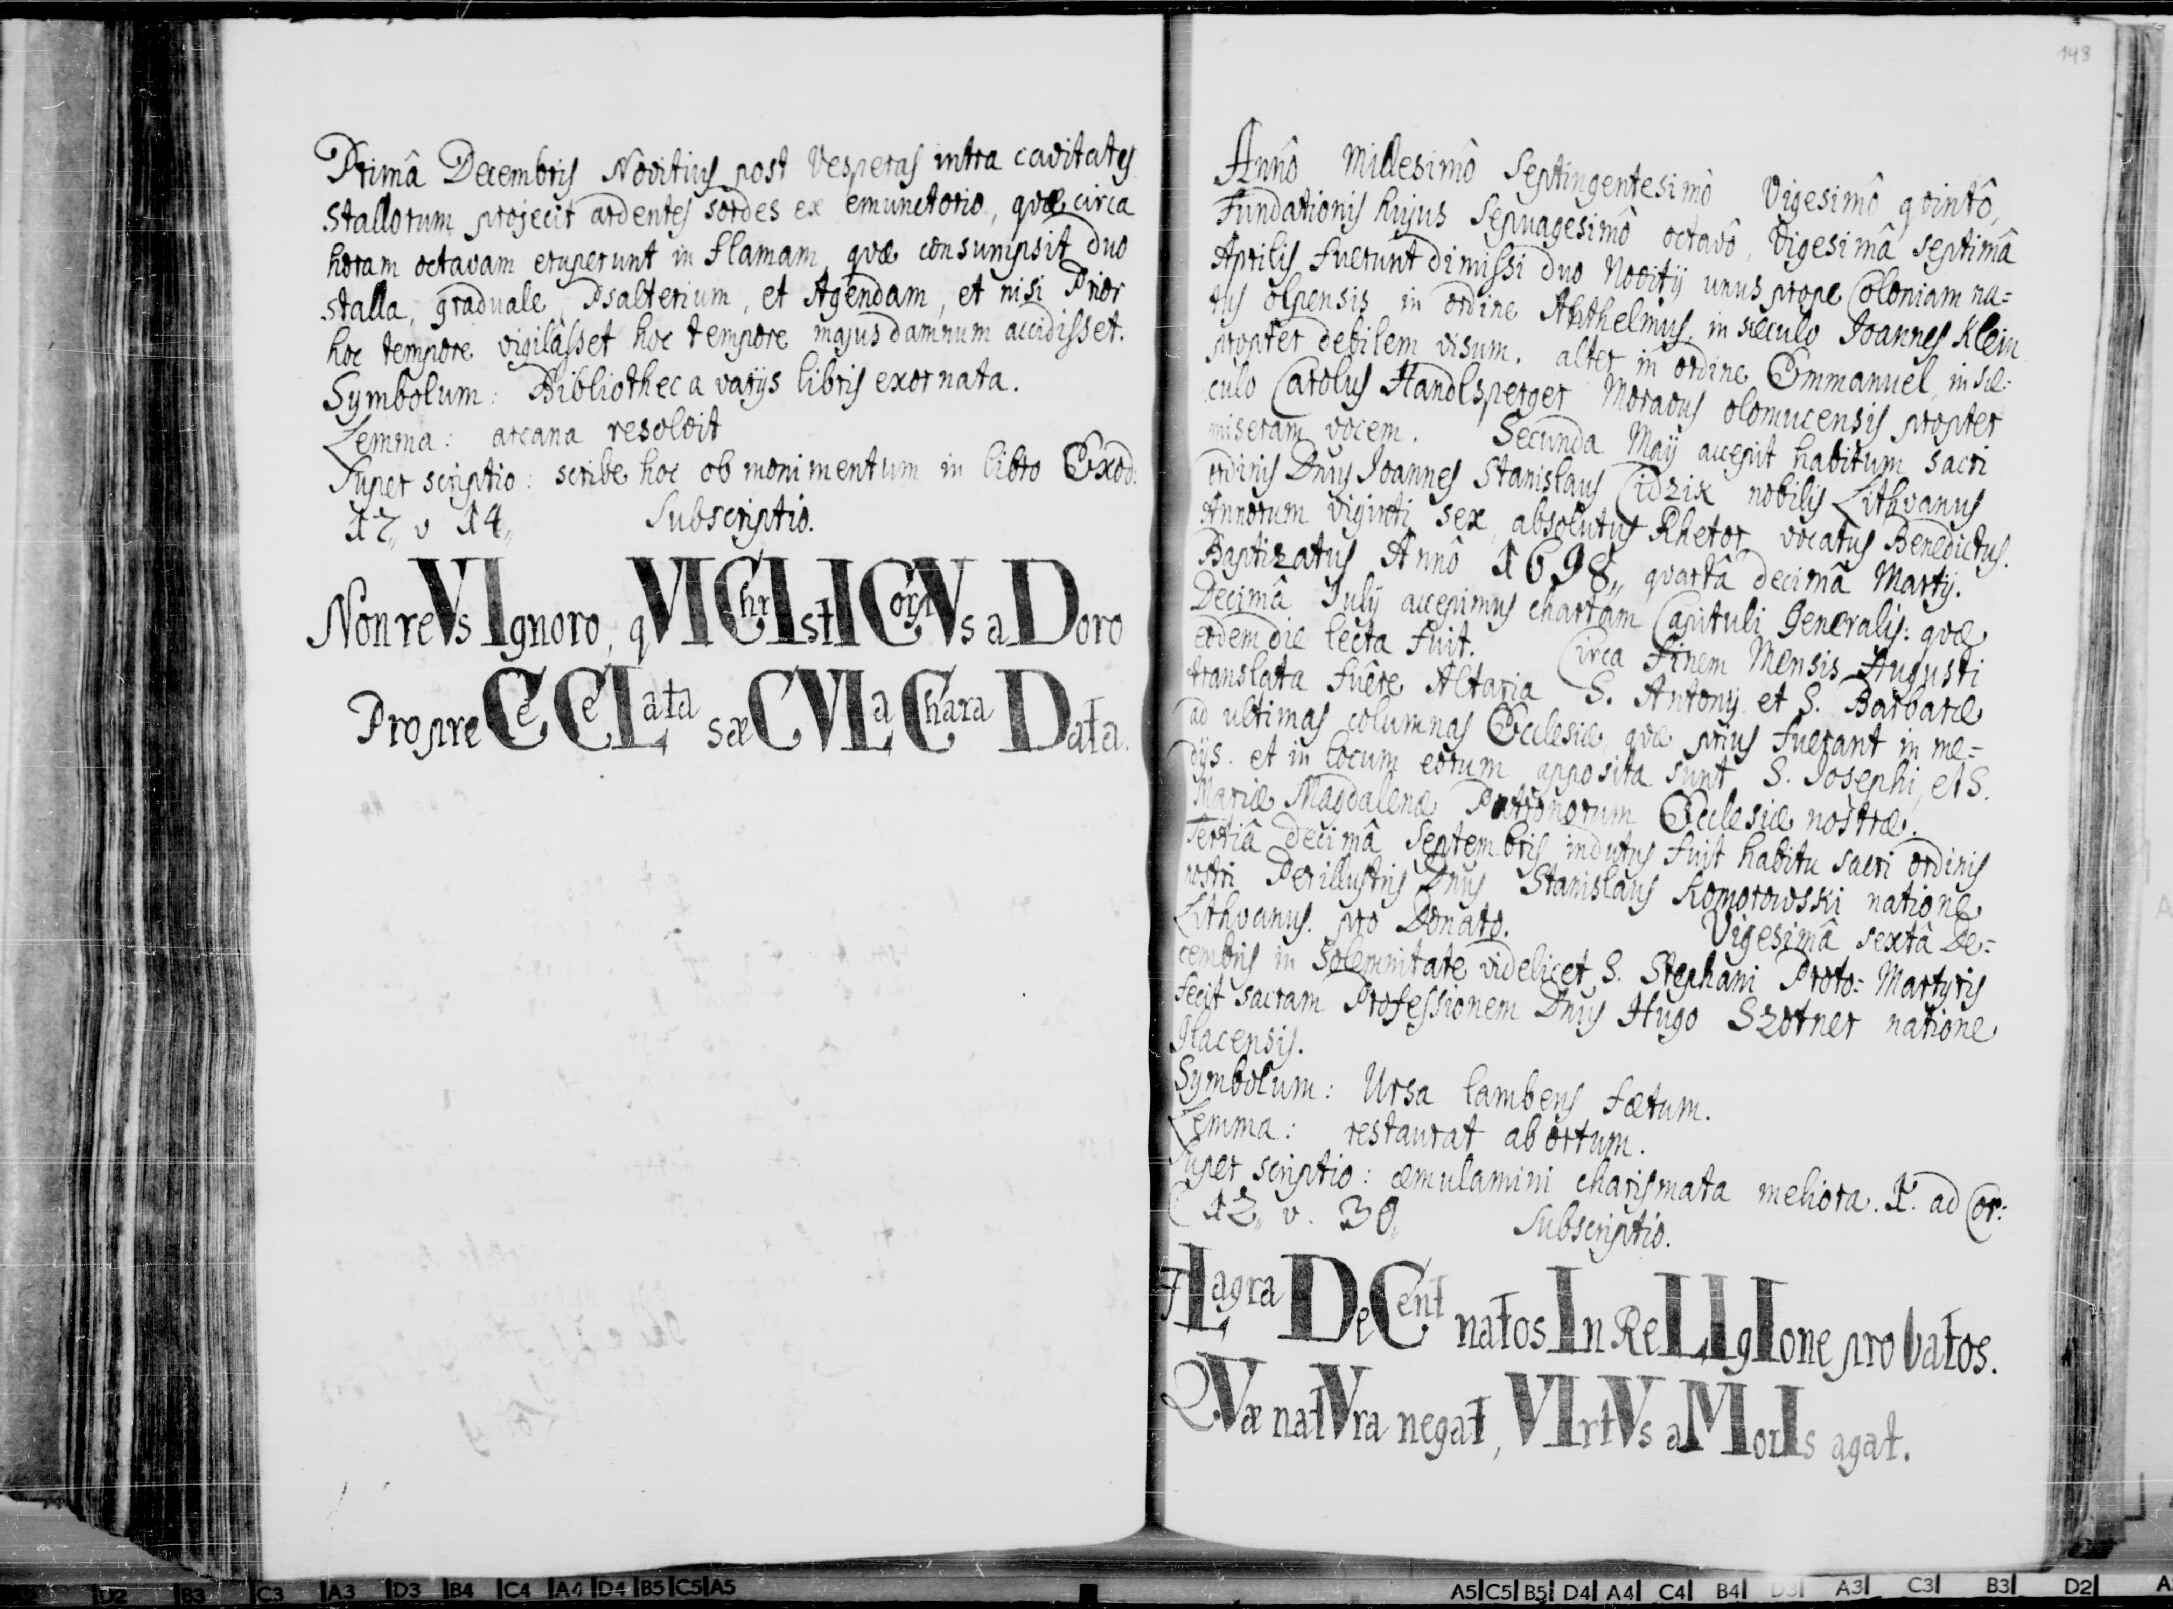 Primâ Decembris Novitius post Vesperas intra cavitates
stallorum projecit ardentes sordes ex emunctorio, quæ circa
horam octavam eruperunt in flamam, quæ consumpsit duo
stalla, graduale, Psalterium, et Agendam, et nisi Prior
hoc tempore vigilâsset hoc tempore majus damnum accidisset.
Symbolum: Bibliotheca varijs libris exornata.
Lemma: arcana resolvit
Super scriptio: scribe hoc ob monimentum in libro Exod:
17,, v 14,, Subscriptio.
Non reVs Ignoro, qVI ChrIstI CorpVs aDoro
Pro pre CeCeLata sæCVLa Chara Data.
148
Annô Millesimô Septingentesimô Vigesimô qvintô,
Fundationis hujus Sepuagesimô octavô, Vigesimâ septimâ
Aprilis fuerunt dimissi duo Novitij unus prope Coloniam na=
tus olpensis in ordine Anthelmus, in sæculo Joannes Klein
propter debilem visum. alter in ordine Emmanuel, in sæ=
culo Carolus Handlsperger Moravus olomucensis propter
miseram vocem. Secunda Maij accepit habitum sacri
ordinis Dnus Joannes Stanislaus Cidzik nobilis Lithvanus
Annorum viginti sex, absolutus Rhetor, vocatus Benedictus.
Baptizatus Annô 1698,, quartâ decimâ Martij.
Decimâ Julij accepimus chartam Capituli Generalis: quæ
eodem die lecta fuit. Circa finem Mensis Augusti
translata fuêre Altaria S. Antonij et S. Barbaræ
ad ultimas columnas Ecclesiæ, quæ prius fuerant in me=
dijs. et in locum eorum apposita sunt S. Josephi, et S.
Mariæ Magdalenæ Patronorum Ecclesiæ nostræ.
Tertiâ decimâ Septembris indutus fuit habitu sacri ordinis
nostri Perillustris Dnus Stanislaus Komorowski natione
Lithvanus. pro Donato. Vigesimâ sextâ De=
cembris in Solemnitate videlicet S. Stephani Proto= Martyris
fecit sacram Professionem Dnus Hugo Szotner natione
Glacensis.
Symbolum: Ursa lambens fætum.
Lemma: restaurat abortum.
Super scriptio: æmulamini charismata meliora. 1. ad Cor:
C 12,, v. 30,, Subscriptio.
FLagra DeCent natos In ReLIgIone probatos.
QVæ natVra negat, VIrtVs aMorIs agat.